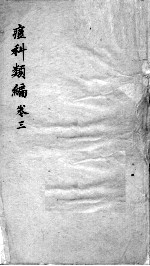 痘科類編 卷三